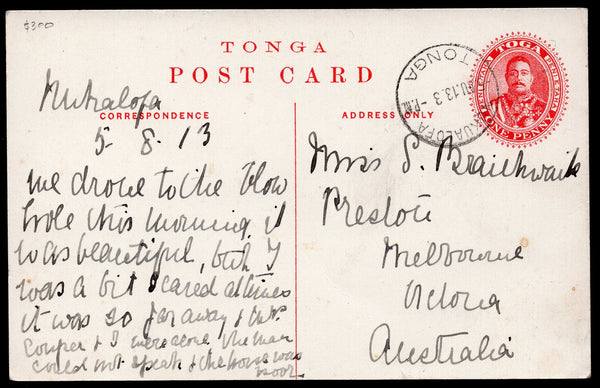 $300
TONGA
POST CARD
CORRESPONDENCE
ADDRESS ONLY
TOGA
ONE PENNY
TONGA
13.3 -PM
Nukalofa
5. 8. 13
we drove to the Blow
hole this morning, it
was beautiful, but I
was a bit scared at times
it was so far away & Mr.
Couper & I were alone, the man
could not speak & the horse was
poor.
Miss S. Braithwaite
Preston
Melbourne
Victoria
Australia